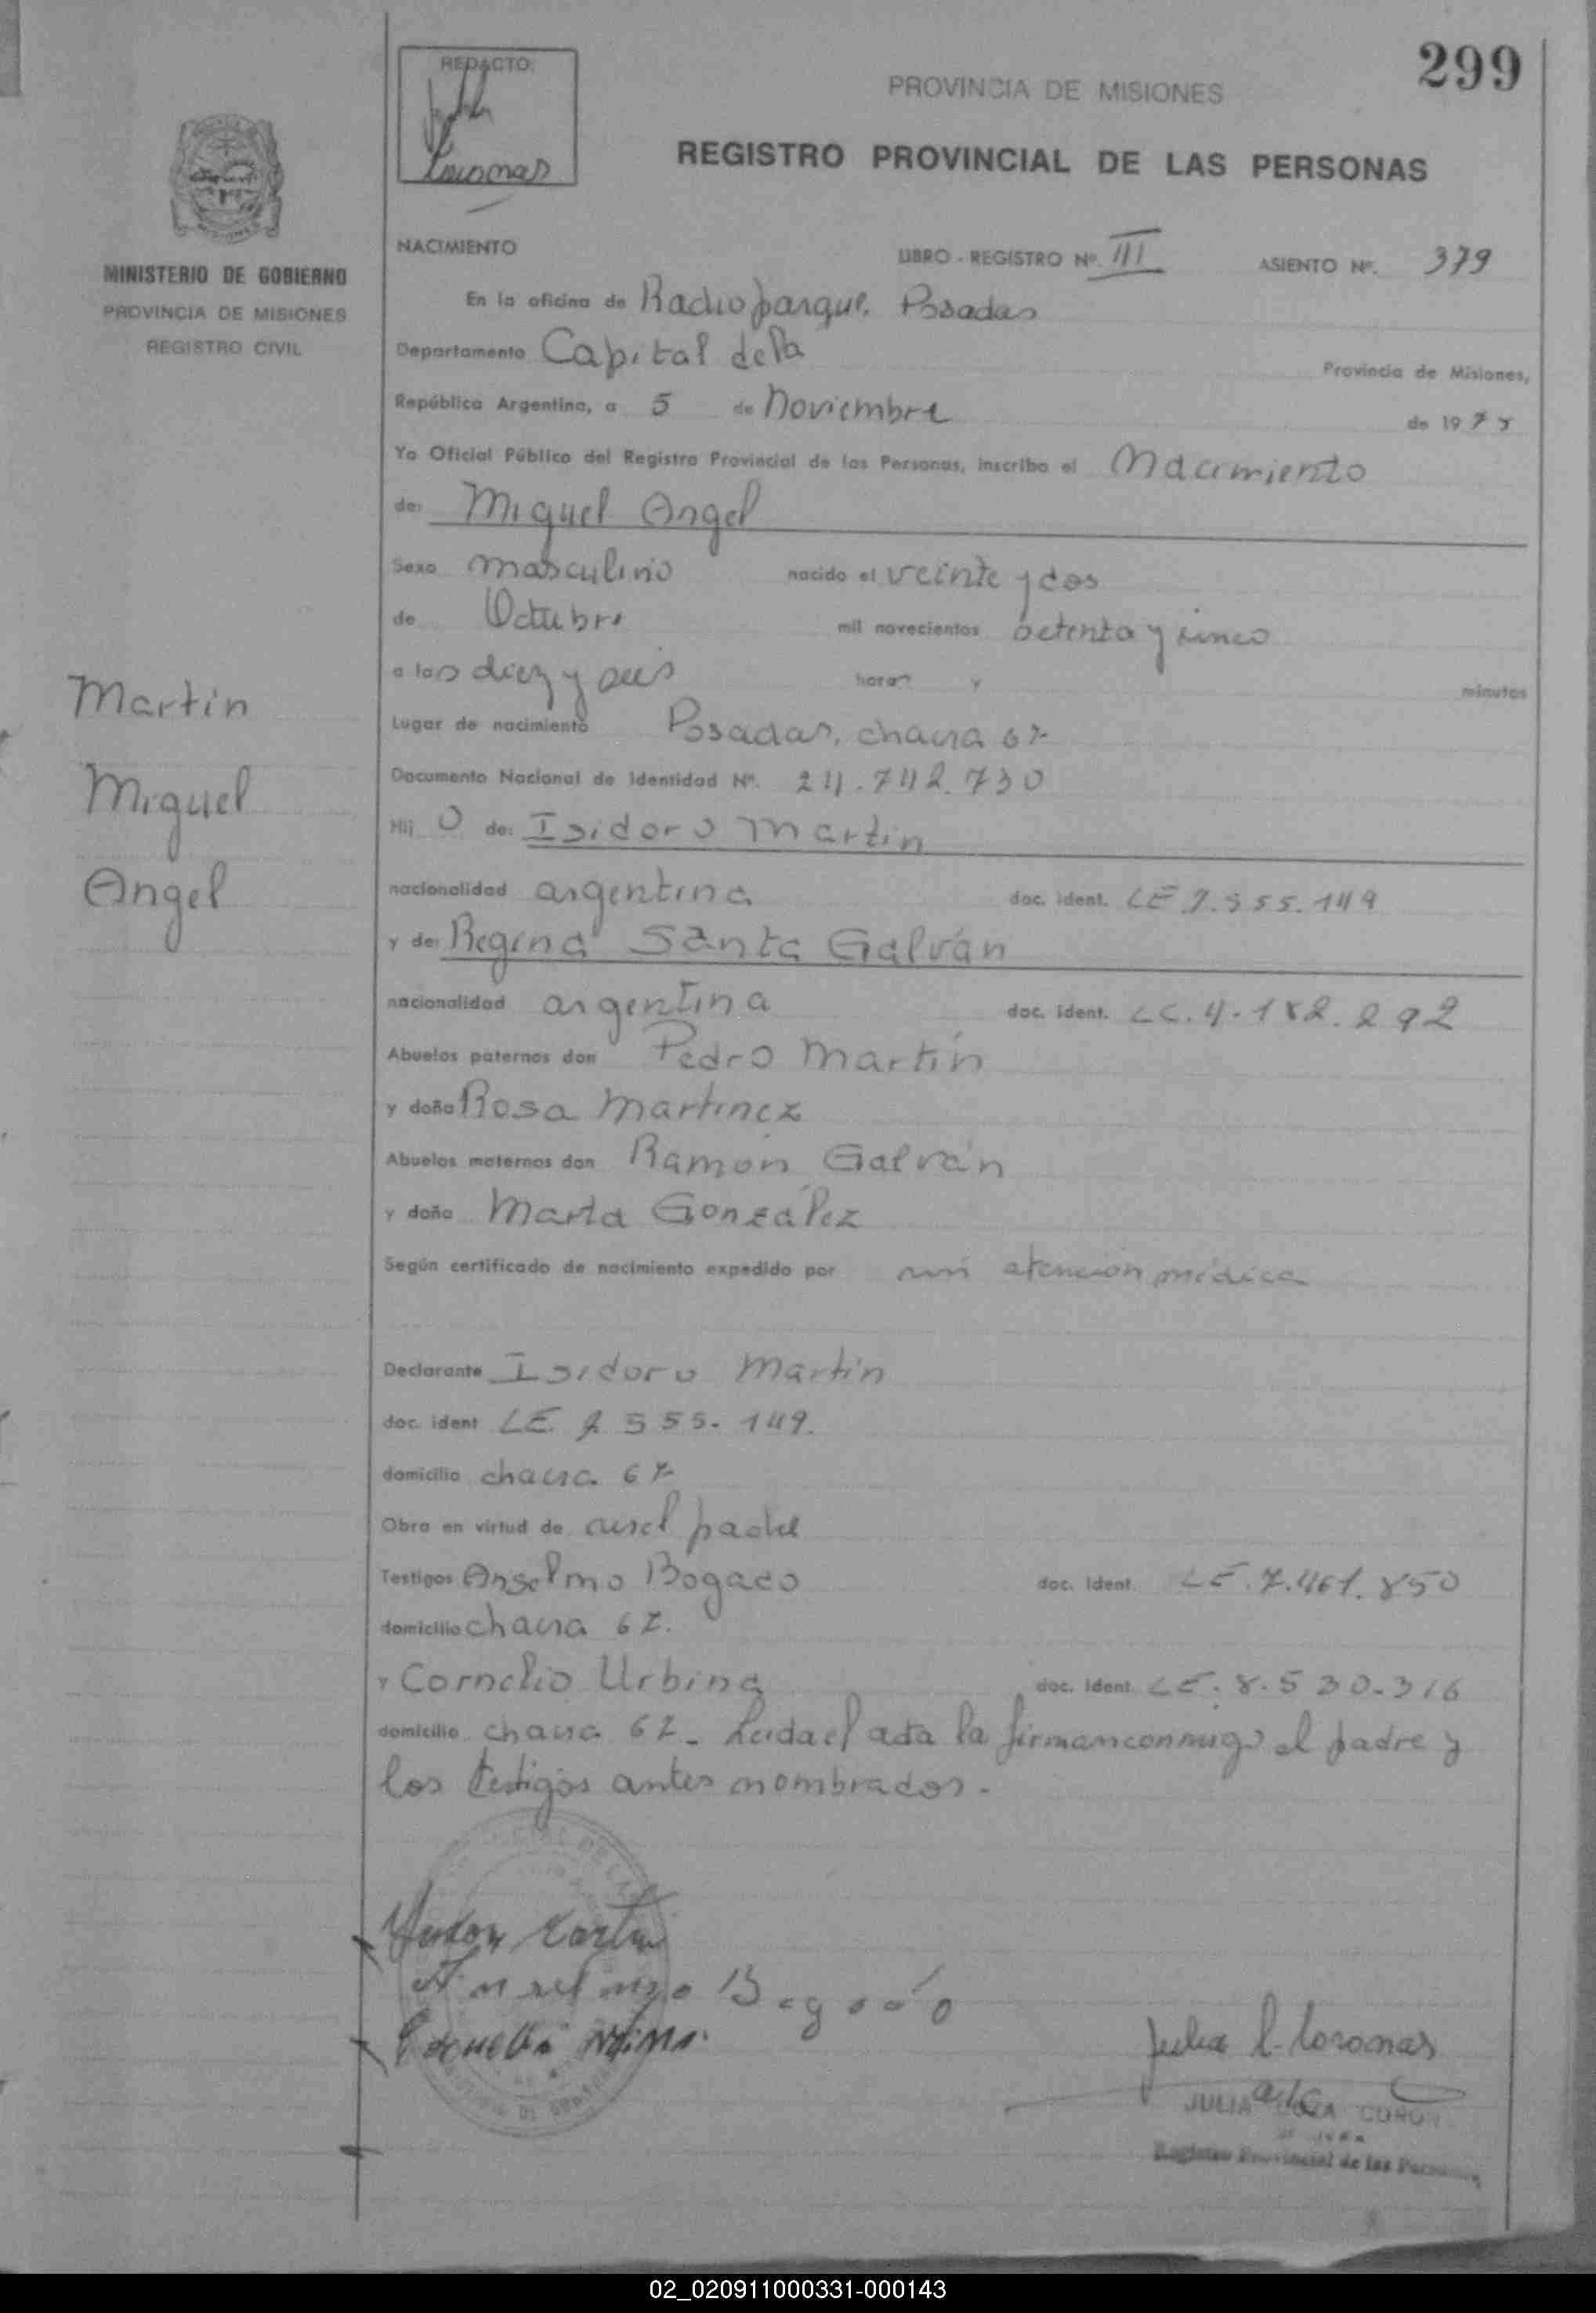 299
REDACTO:
PROVINCIA DE MISIONES
REGISTRO PROVINCIAL DE LAS PERSONAS
MINISTERIO DE GOBIERNO
PROVINCIA DE MISIONES
REGISTRO CIVIL
NACIMIENTO LIBRO - REGISTRO Nº. III ASIENTO Nº. 379
En la oficina de Radio parque. Posadas
Departamento Capital de la Provincia de Misiones,
República Argentina, a 5 de Noviembre de 197
Yo Oficial Público del Registro Provincial de las Personas, inscribo el Nacimiento
de: Miguel Angel
Sexo masculino nacido el veinte y dos
de Octubre mil novecientos setenta y cinco
a las diez y seis horas y minutos
Martin
Lugar de nacimiento Posadas. chacra 67
Miguel
Documento Nacional de Identidad Nº. 24.742.730
Hijo de: Isidoro Martin
Angel
nacionalidad argentina doc. ident. LE 7.555.149
y de: Regina Santa Galván
nacionalidad argentina doc. ident. LC. 4.182.292
Abuelos paternos don Pedro Martín
y doña Rosa Martinez
Abuelos maternos don Ramón Galván
y doña Marta González
Según certificado de nacimiento expedido por sin atención médica
Declarante Isidoro Martín
doc. ident LE 7 555. 149.
domicilio chacra 67
Obra en virtud de ser el padre
Testigos Anselmo Bogado doc. ident. LE. 7.461.850
domicilio chacra 67.
y Cornelio Urbina doc. ident. LE. 8.530.316
domicilio chacra 67 - Leida el acta la firman conmigo el padre y
los testigos antes nombrados.
Anselmo Bogado
Julia L. Coronas
JULIA
Registro Provincial de las
02_020911000331-000143